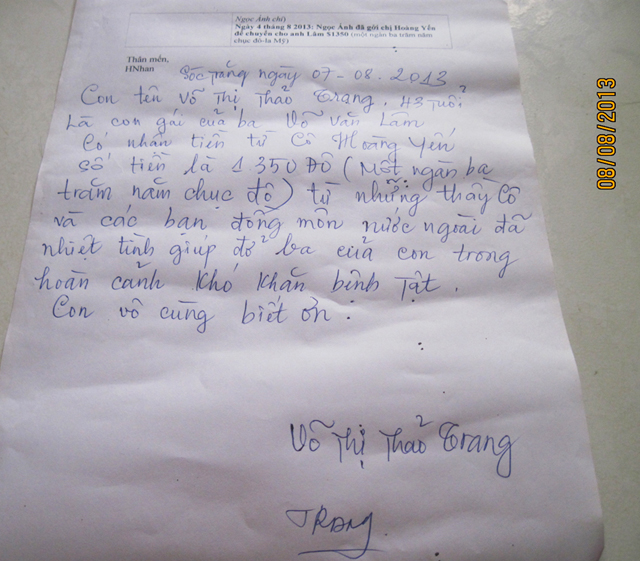 Ngọc Ánh chị)
Ngày 4 tháng 8 2013: Ngọc Ánh đã gởi chị Hoàng Yến
để chuyển cho anh Lâm $1350 (một ngàn ba trăm năm
chục đô-la Mỹ)
Thân mến,
HNhan
Sóc Trăng ngày 07-08.2013
Con tên Võ Thị Thảo Trang. 43 tuổi
Là con gái của ba Võ Văn Lâm
Có nhận tiền từ Cô Hoàng Yến
số tiền là 1.350 ĐÔ (Một ngàn ba
trăm năm chục đô) từ những thầy Cô
và các bạn đồng môn nước ngoài đã
nhiệt tình giúp đỡ ba của con trong
hoàn cảnh khó khăn bệnh tật.
Con vô cùng biết ơn.
Võ Thị Thảo Trang
TRang
08/08/2013